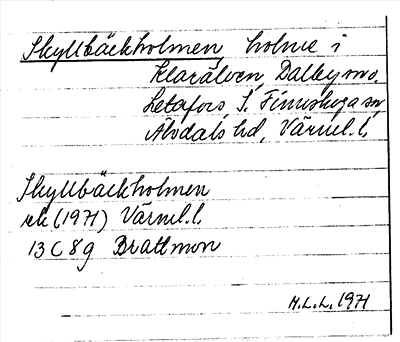 Skyllbäckholmen, holme i
Klarälven, Dalby sn o.
Letafors S. Finnskoga sn,
Älvdals hd, Värml. l.
Skyllbäckholmen
ek (1971) Värml. l.
13 C 8 g Brattmon
M.L.L. 1971